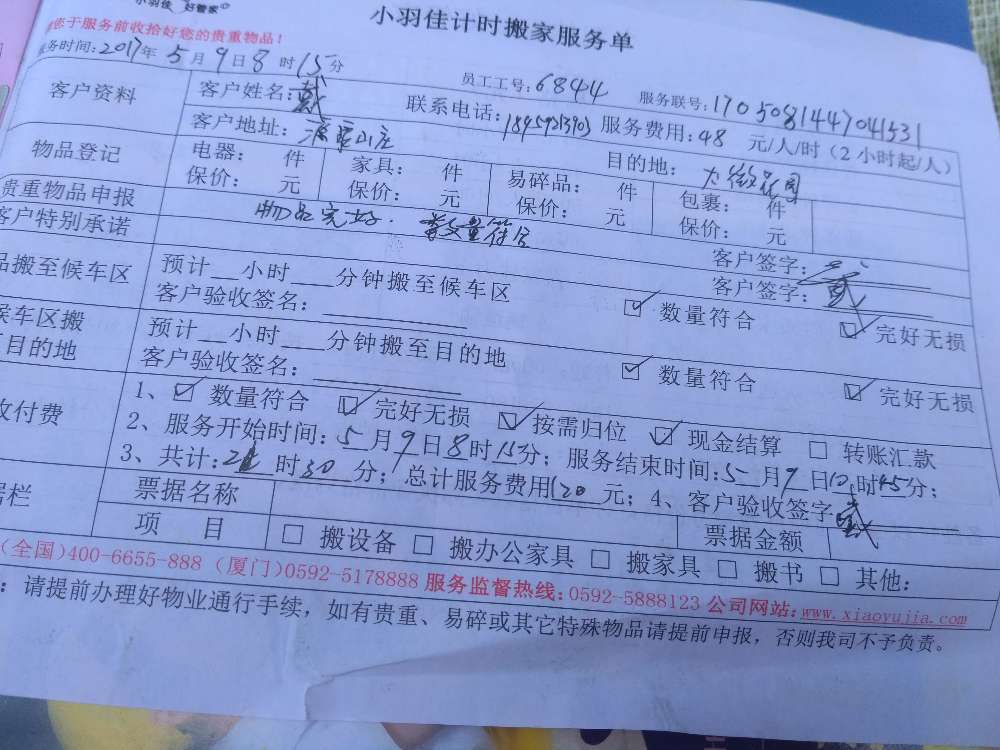 小羽佳 好管家
小羽佳计时搬家服务单
您于服务前收拾好您的贵重物品！
服务时间：2017年5月9日8时15分
员工工号：6844 服务联号：1705081447041531
客户资料 客户姓名：戴 联系电话：18959213903 服务费用：48 元/人/时（2小时起/人）
客户地址：山庄 目的地：花园
物品登记 电器： 件 家具： 件 易碎品： 件 包裹： 件
保价： 元 保价： 元 保价： 元 保价： 元
贵重物品申报 物品完好. 数量符合 客户签字：戴
客户特别承诺 客户签字：戴
品搬至候车区 预计__小时___分钟搬至候车区 数量符合 完好无损
客户验收签名：
候车区搬 预计__小时___分钟搬至目的地 数量符合 完好无损
目的地 客户验收签名：
收付费 1、数量符合 完好无损 按需归位 现金结算 转账汇款
2、服务开始时间：5月9日8时15分；服务结束时间：5月9日10时45分；
3、共计：2时30分；总计服务费用120元；4、客户验收签字戴
据栏 票据名称 票据金额
项 目 搬设备 搬办公家具 搬家具 搬书 其他：
(全国)400-6655-888 (厦门)0592-5178888 服务监督热线：0592-5888123 公司网站：www.xiaoyujia.com
：请提前办理好物业通行手续，如有贵重、易碎或其它特殊物品请提前申报，否则我司不予负责。